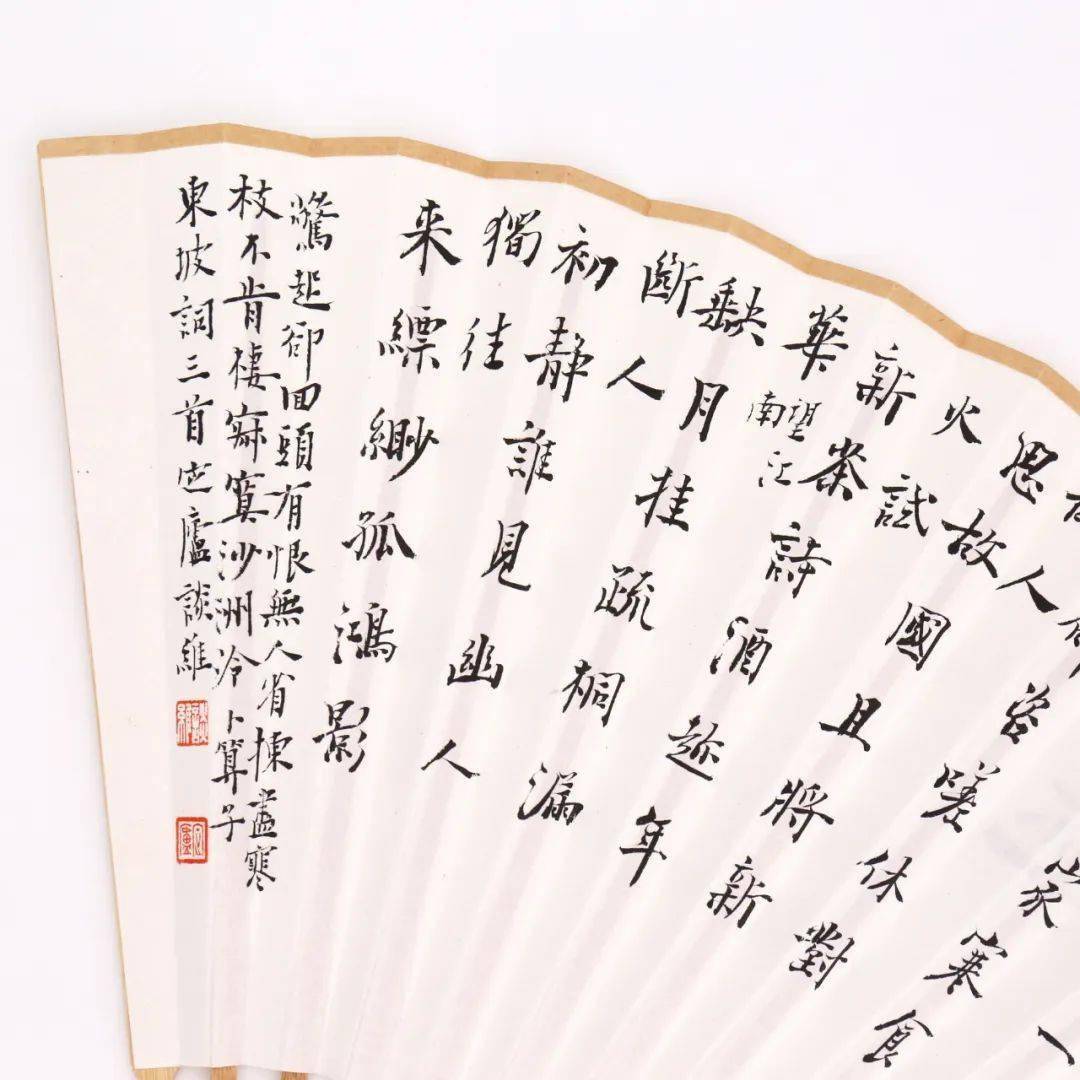 一
家寒食
咨嗟休對
人
思故國且將新
火試
新茶詩酒趁年
華
望江南
缺月挂疏桐漏
斷人
初靜誰見幽人
獨往
来縹緲孤鴻影
驚起卻回頭有恨無人省揀盡寒
枝不肯棲寂寞沙洲冷 卜算子
東坡詞三首 世廬談維